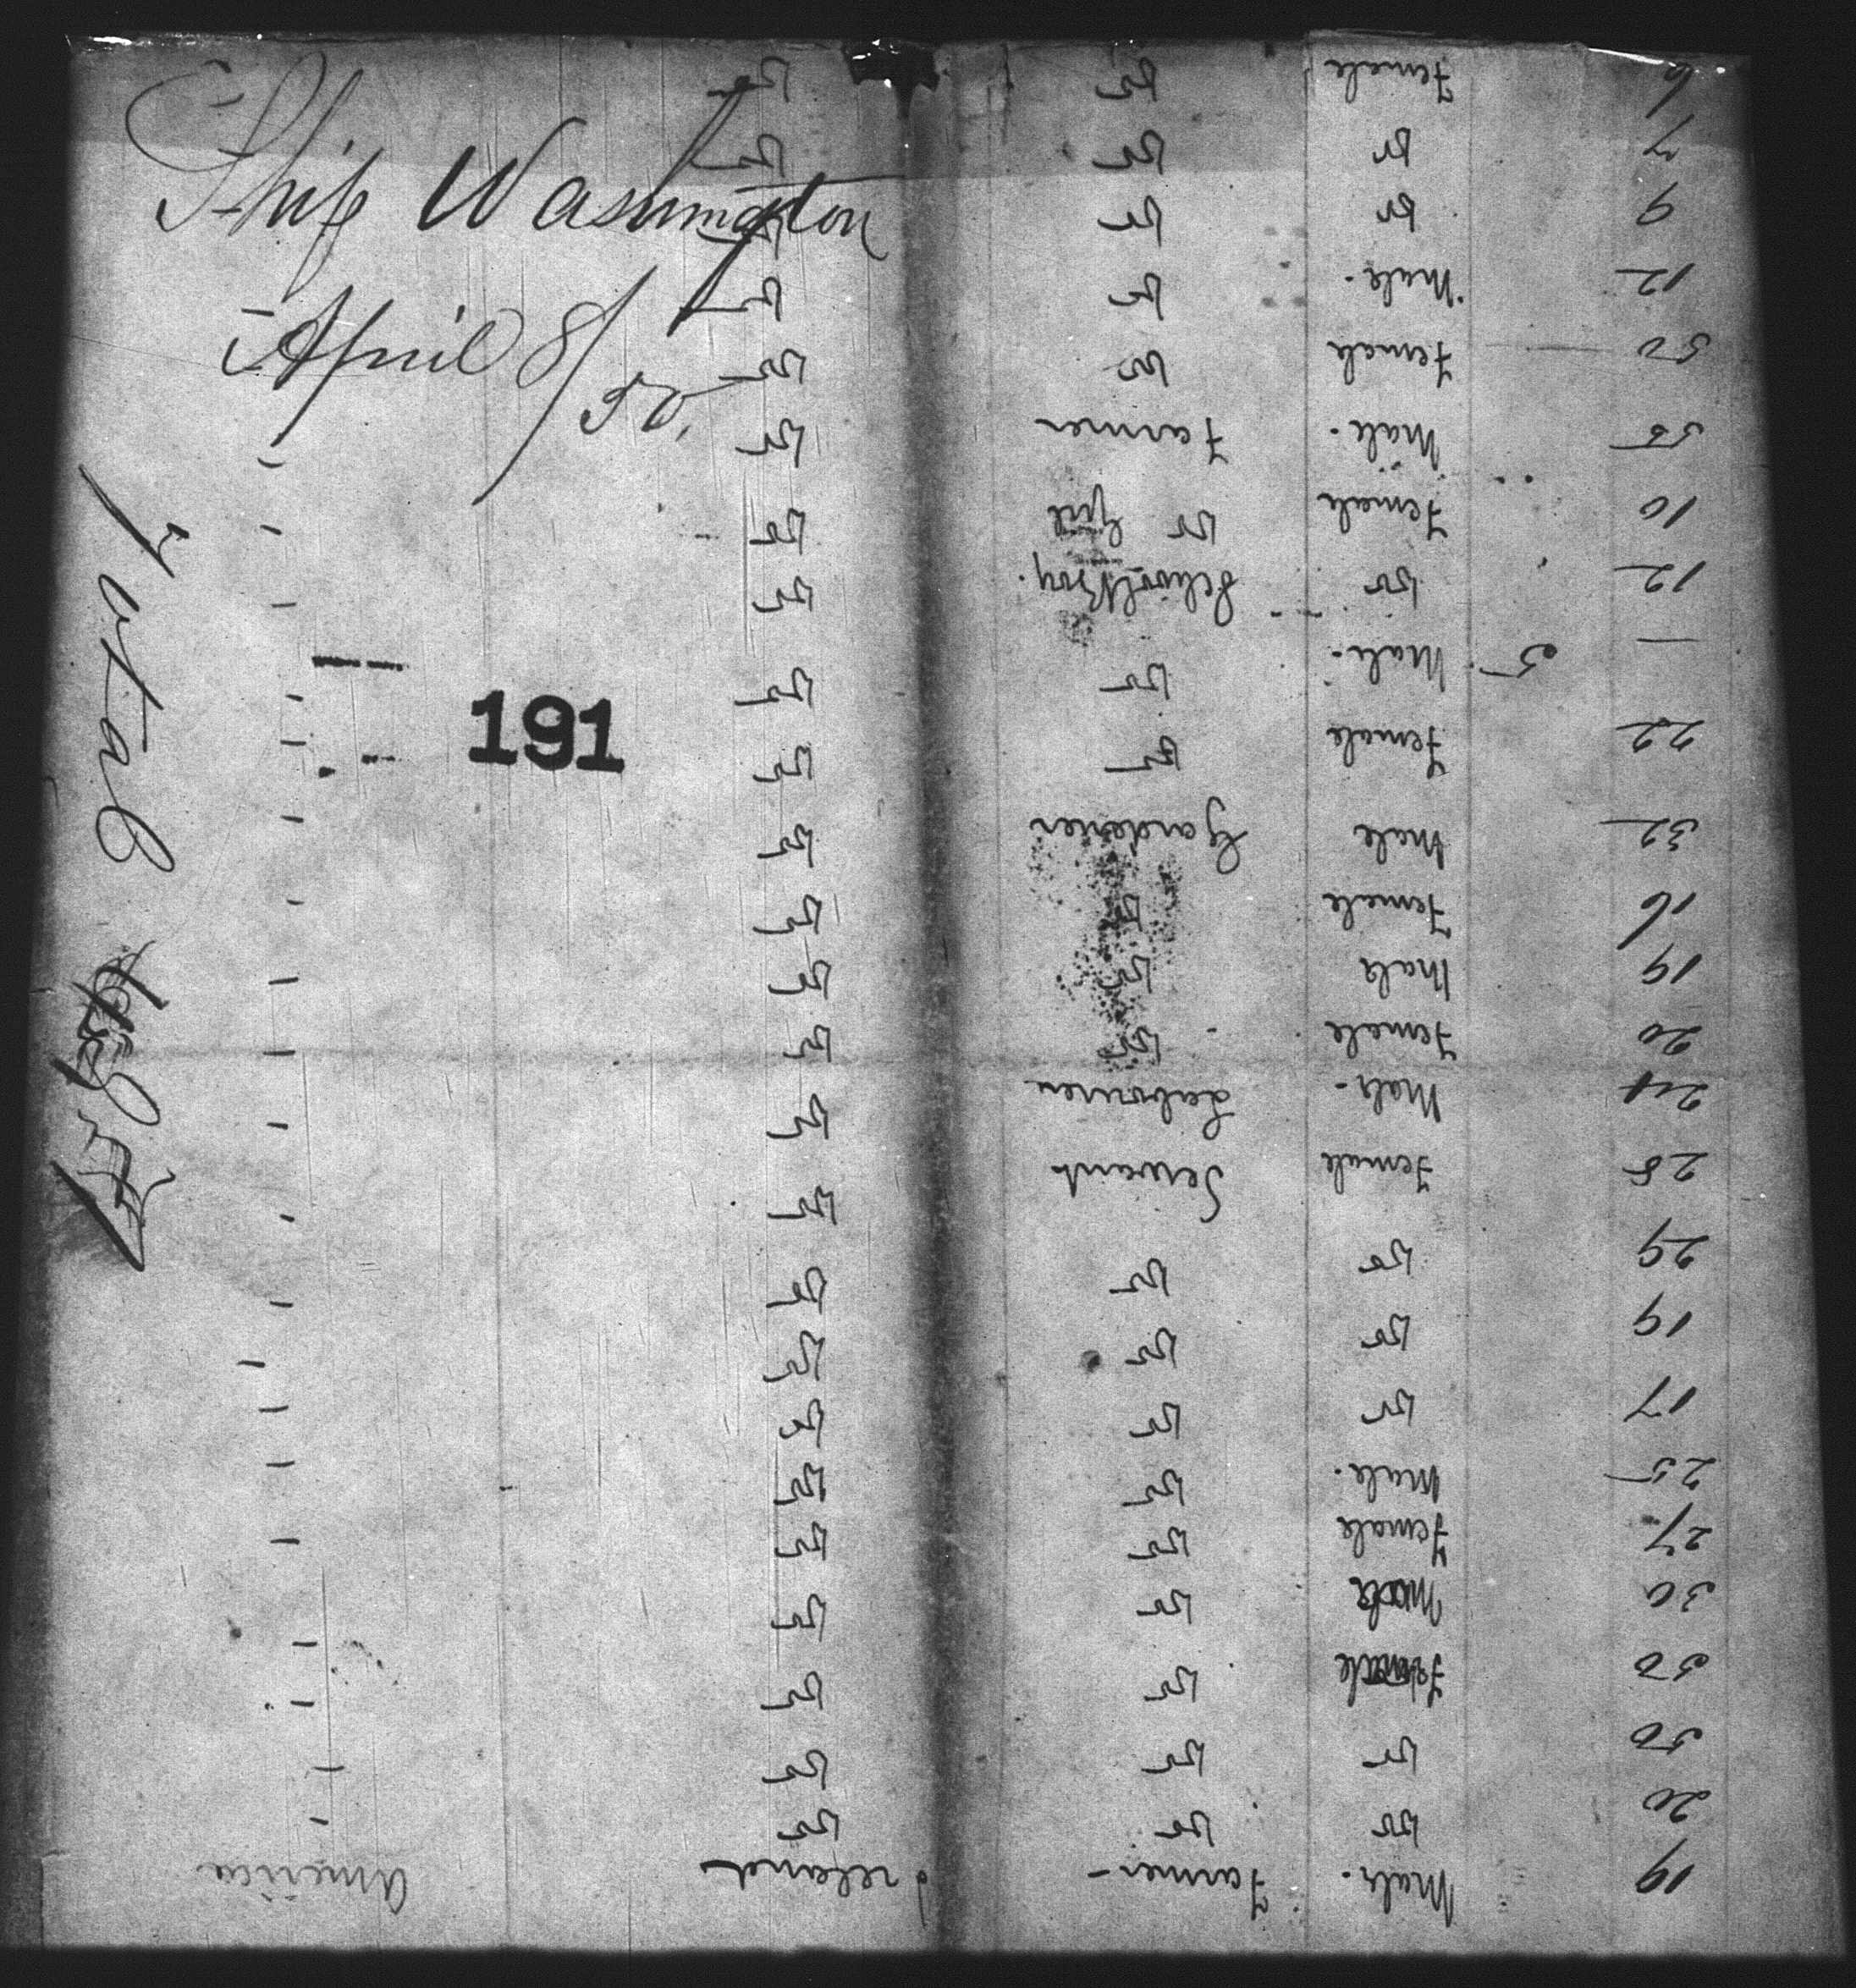 Ship Washington
April 8/50.
191
19 Male- Farmer- Ireland America
20 Do Do Do "
50 Do Do Do "
50 Female Do Do "
30 Male Do Do "
27 Female Do Do "
25 Male. Do Do "
17 Do Do Do "
19 Do Do Do "
29 Do Do Do "
28 Female Servant Do "
24 Male- Labourer Do "
20 Female Do Do "
19 Male Do Do "
16 Female Do Do "
32 Male Gardener Do "
22 Female Do Do "
— 5 Male- Do Do "
12 Do School Boy. Do "
10 Female Do Girl Do "
55 Male- Farmer Do "
50 Female Do Do
12 Male- Do Do
9 Do Do Do
7 Do Do Do
6 Female Do Do